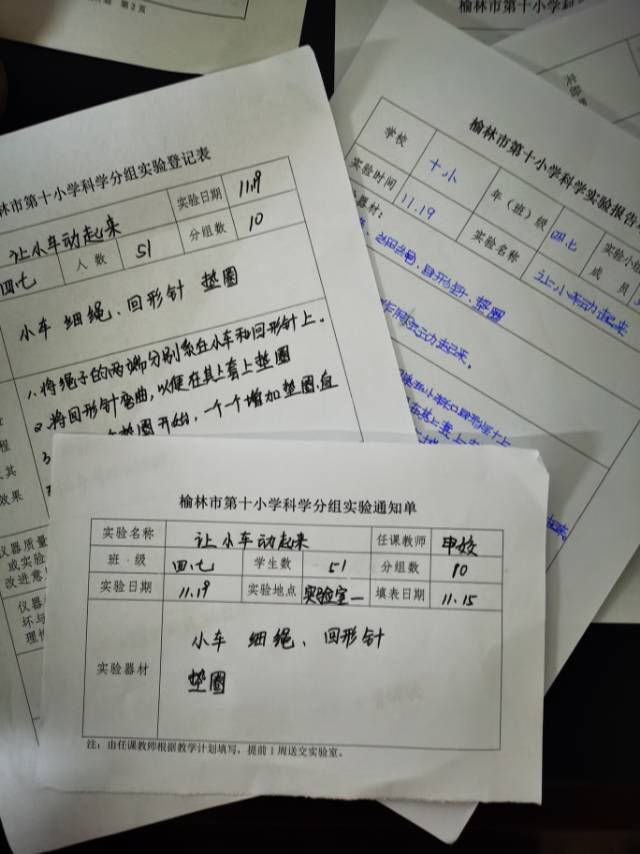 第 2 页
榆林市第十小学科
林市第十小学科学分组实验登记表
让小车动起来
实验日期 11.19
四.七 人 数 51 分组数 10
小车 细绳、回形针 垫圈
1.将绳子的两端分别系在小车和回形针上.
2.将回形针弯曲,以便在其上套上垫圈
垫圈开始,一个个增加垫圈,
程
效果
仪器质量
或实验
改进意
仪器
坏与
理
榆林市第十小学科学实验报告
学校 十小 年(班)级 四.七 实验小组
成 员
实验时间 11.19 实验名称 让小车动起来
器材:
回形针、垫圈
榆林市第十小学科学分组实验通知单
实验名称 让小车动起来 任课教师
班 级 四.七 学生数 51 分组数 10
实验日期 11.19 实验地点 实验室一 填表日期 11.15
实验器材 小车 细绳、回形针
垫圈
注:由任课教师根据教学计划填写,提前1周送交实验室。